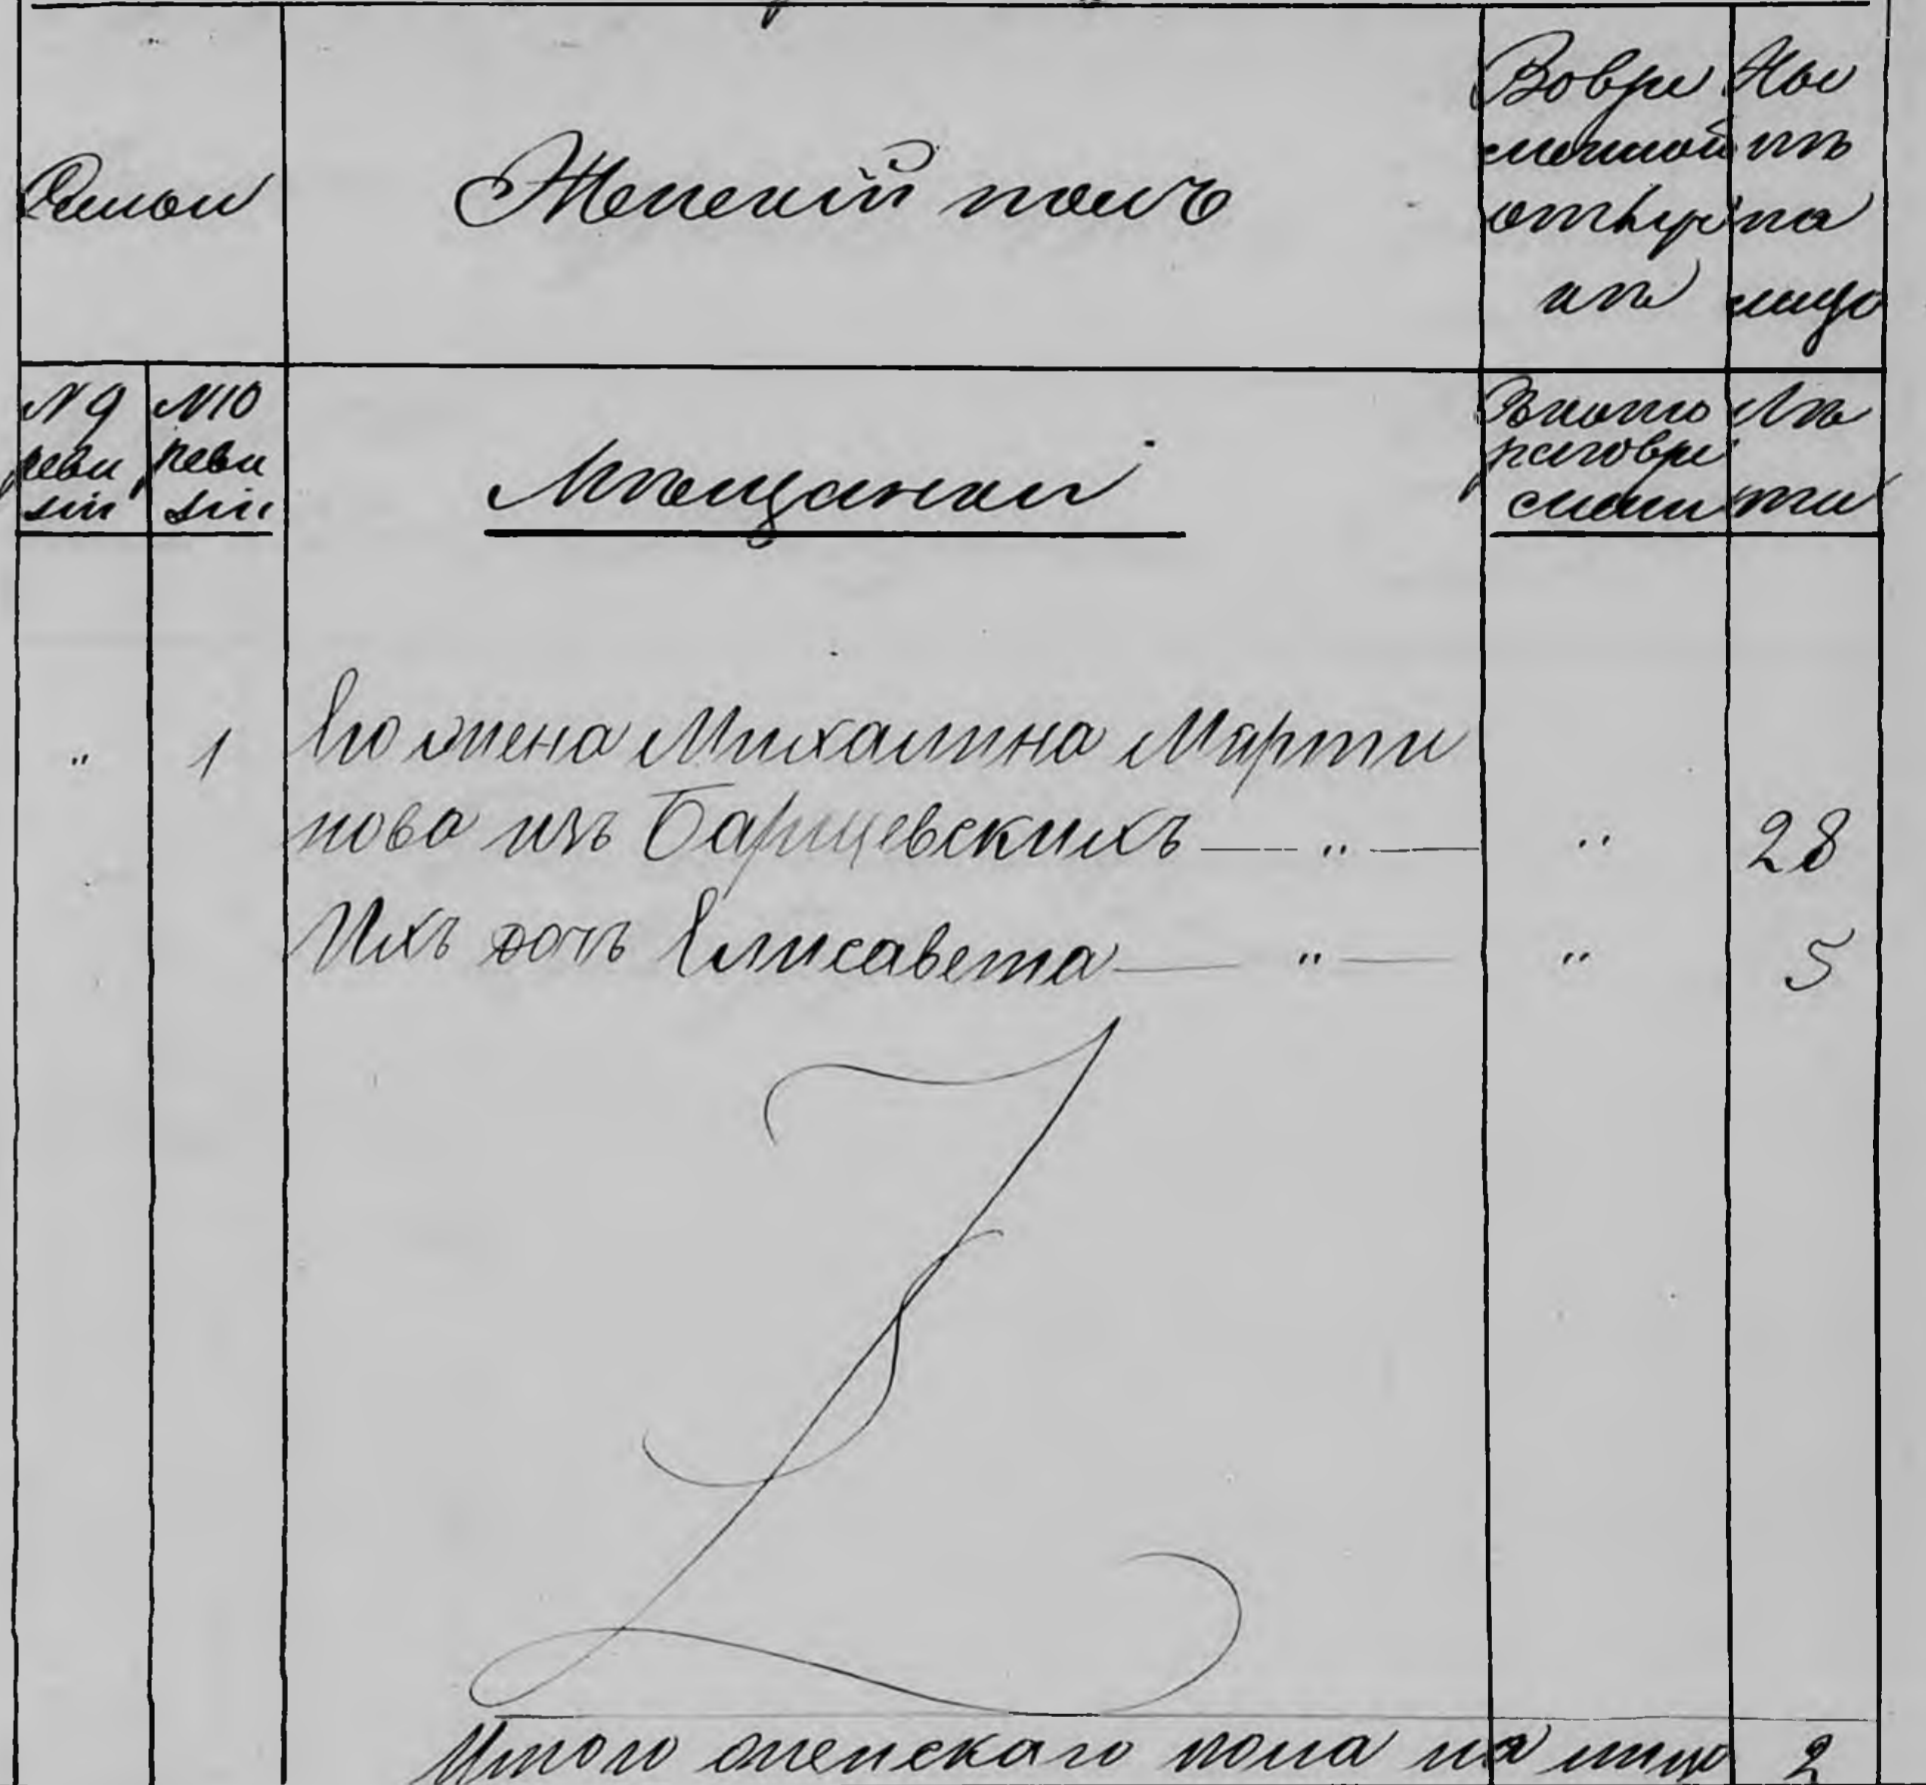 Семьи
Женскій полъ
Вовре
менной
отлуч
кѣ
Нас
тѣ
на
лицо
N 9
реви
зіи
N 10
реви
зіи
Мѣщанки
Ското
раговре
мени
Лѣ
та
" 1 Его жена Михалина Марти
нова изъ Барщевскихъ — " — " 28
Ихъ дочь Елисавета — " — " 5
Итого женскаго пола на лицо 2